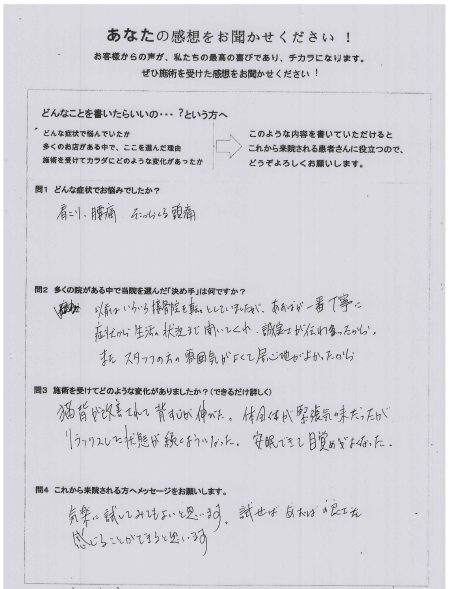 あなたの感想をお聞かせください！
お客様からの声が、私たちの最高の喜びであり、チカラになります。
ぜひ施術を受けた感想をお聞かせください！
どんなことを書いたらいいの・・・？という方へ
どんな症状で悩んでいたか
多くのお店がある中で、ここを選んだ理由
施術を受けてカラダにどのような変化があったか
このような内容を書いていただけると
これから来院される患者さんに役立つので、
どうぞよろしくお願いします。
問1 どんな症状でお悩みでしたか？
肩こり、腰痛 頭痛
問2 多くの院がある中で当院を選んだ「決め手」は何ですか？
以前はいろいろ接骨院を転々としていましたが、が一番丁寧に
症状から生活の状況まで聞いてくれ、誠実さが伝わったから。
また スタッフの方の雰囲気がよくて居心地がよかったから
問3 施術を受けてどのような変化がありましたか？（できるだけ詳しく）
猫背が改善されて背すじが伸びた。体全体が緊張気味だったが
リラックスした状態が続くようになった。安眠できて目覚めがよくなった。
問4 これから来院される方へメッセージをお願いします。
気楽に試してみてもよいと思います。試せば
感じることができると思います